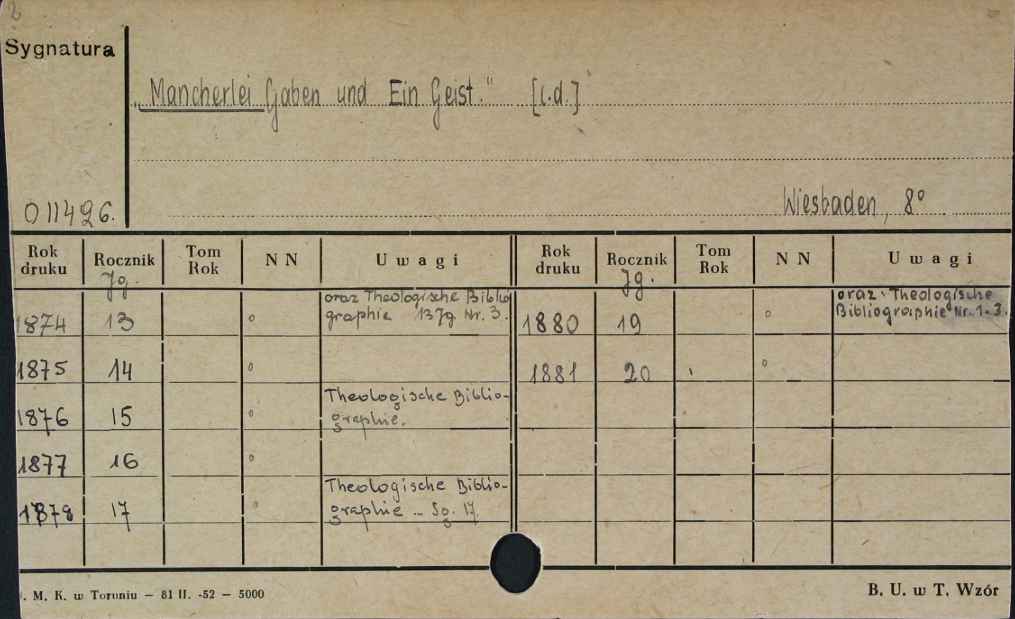 2
Sygnatura
„Mancherlei Gaben und Ein Geist." [i.d.]
011426.
Wiesbaden, 8°
Rok druku Rocznik Tom Rok NN Uwagi Rok druku Rocznik Tom Rok NN Uwagi
Jg. Jg.
1874 13 ° oraz Theologische Biblio
graphie 13Jg Nr. 3.
1880 19 ° oraz Theologische
Bibliographie Nr. 1-3.
1875 14 °
1881 20 °
1876 15 ° Theologische Biblio-
graphie.
1877 16 °
1878 17 ° Theologische Biblio-
graphie - Jg. 17.
. M. K. w Toruniu — 81 II. -52 — 5000
B. U. w T. Wzór